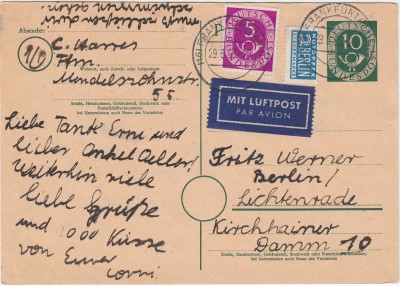 muß schließen denn
Absender:
C. Harres
Ffm.
Wohnort, auch Zustell- oder Leitpostamt
Mendelssohnstr.
55
Straße, Hausnummer, Gebäudeteil, Stockwerk oder
Postschließfachnummer;
bei Untermietern auch Name des Vermieters
Liebe Tante Erna und
lieber Onkel
Weiterhin viele
liebe Grüße
und 000 Küsse
von Eurer
FRANKFURT
29.
5
DEUTSCHE BUNDESPOST
NOTOPFER
2 BERLIN
STEUERMARKE
FRANKFURT
10
DEUTSCHE BUNDESPOST
MIT LUFTPOST
PAR AVION
Fritz Werner
Berlin/
Lichtenrade
Kirchhainer
Damm 10
Straße, Hausnummer, Gebäudeteil, Stockwerk oder Postschließfachnummer;
bei Untermietern auch Name des Vermieters